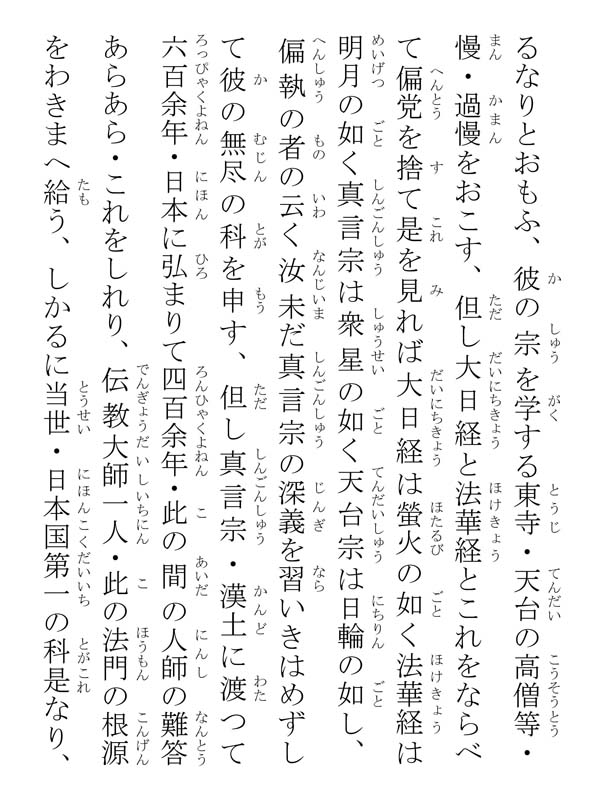 るなりとおもふ、彼の宗を学する東寺・天台の高僧等・
慢・過慢をおこす、但し大日経と法華経とこれをならべ
て偏党を捨て是を見れば大日経は螢火の如く法華経は
明月の如く真言宗は衆星の如く天台宗は日輪の如し、
偏執の者の云く汝未だ真言宗の深義を習いきはめずし
て彼の無尽の科を申す、但し真言宗・漢土に渡つて
六百余年・日本に弘まりて四百余年・此の間の人師の難答
あらあら・これをしれり、伝教大師一人・此の法門の根源
をわきまへ給う、しかるに当世・日本国第一の科是なり、